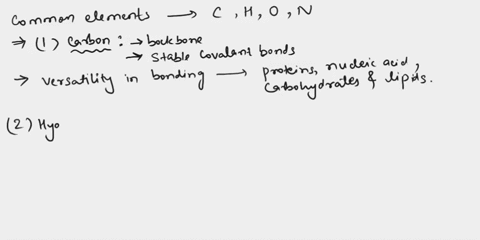 Common elements → C, H, O, N
⇒ (1) Carbon: → backbone
→ Stable Covalant bonds
→ versatility in bonding → proteins, nucleic acid,
Carbohydrates & lipids.
(2) Hyo